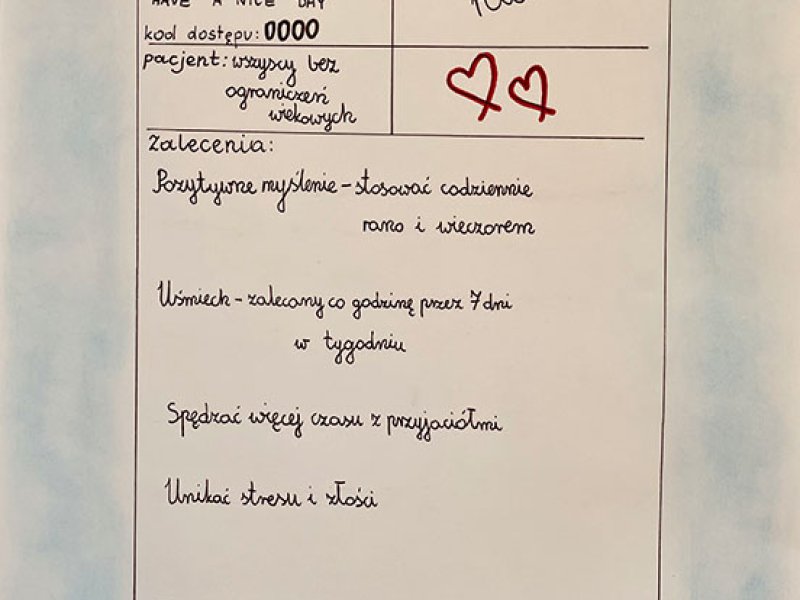 HAVE A NICE DAY
kod dostępu: 0000
pacjent: wszyscy bez
ograniczeń
wiekowych
Zalecenia:
Pozytywne myślenie - stosować codziennie
rano i wieczorem
Uśmiech - zalecany co godzinę przez 7 dni
w tygodniu
Spędzać więcej czasu z przyjaciółmi
Unikać stresu i złości